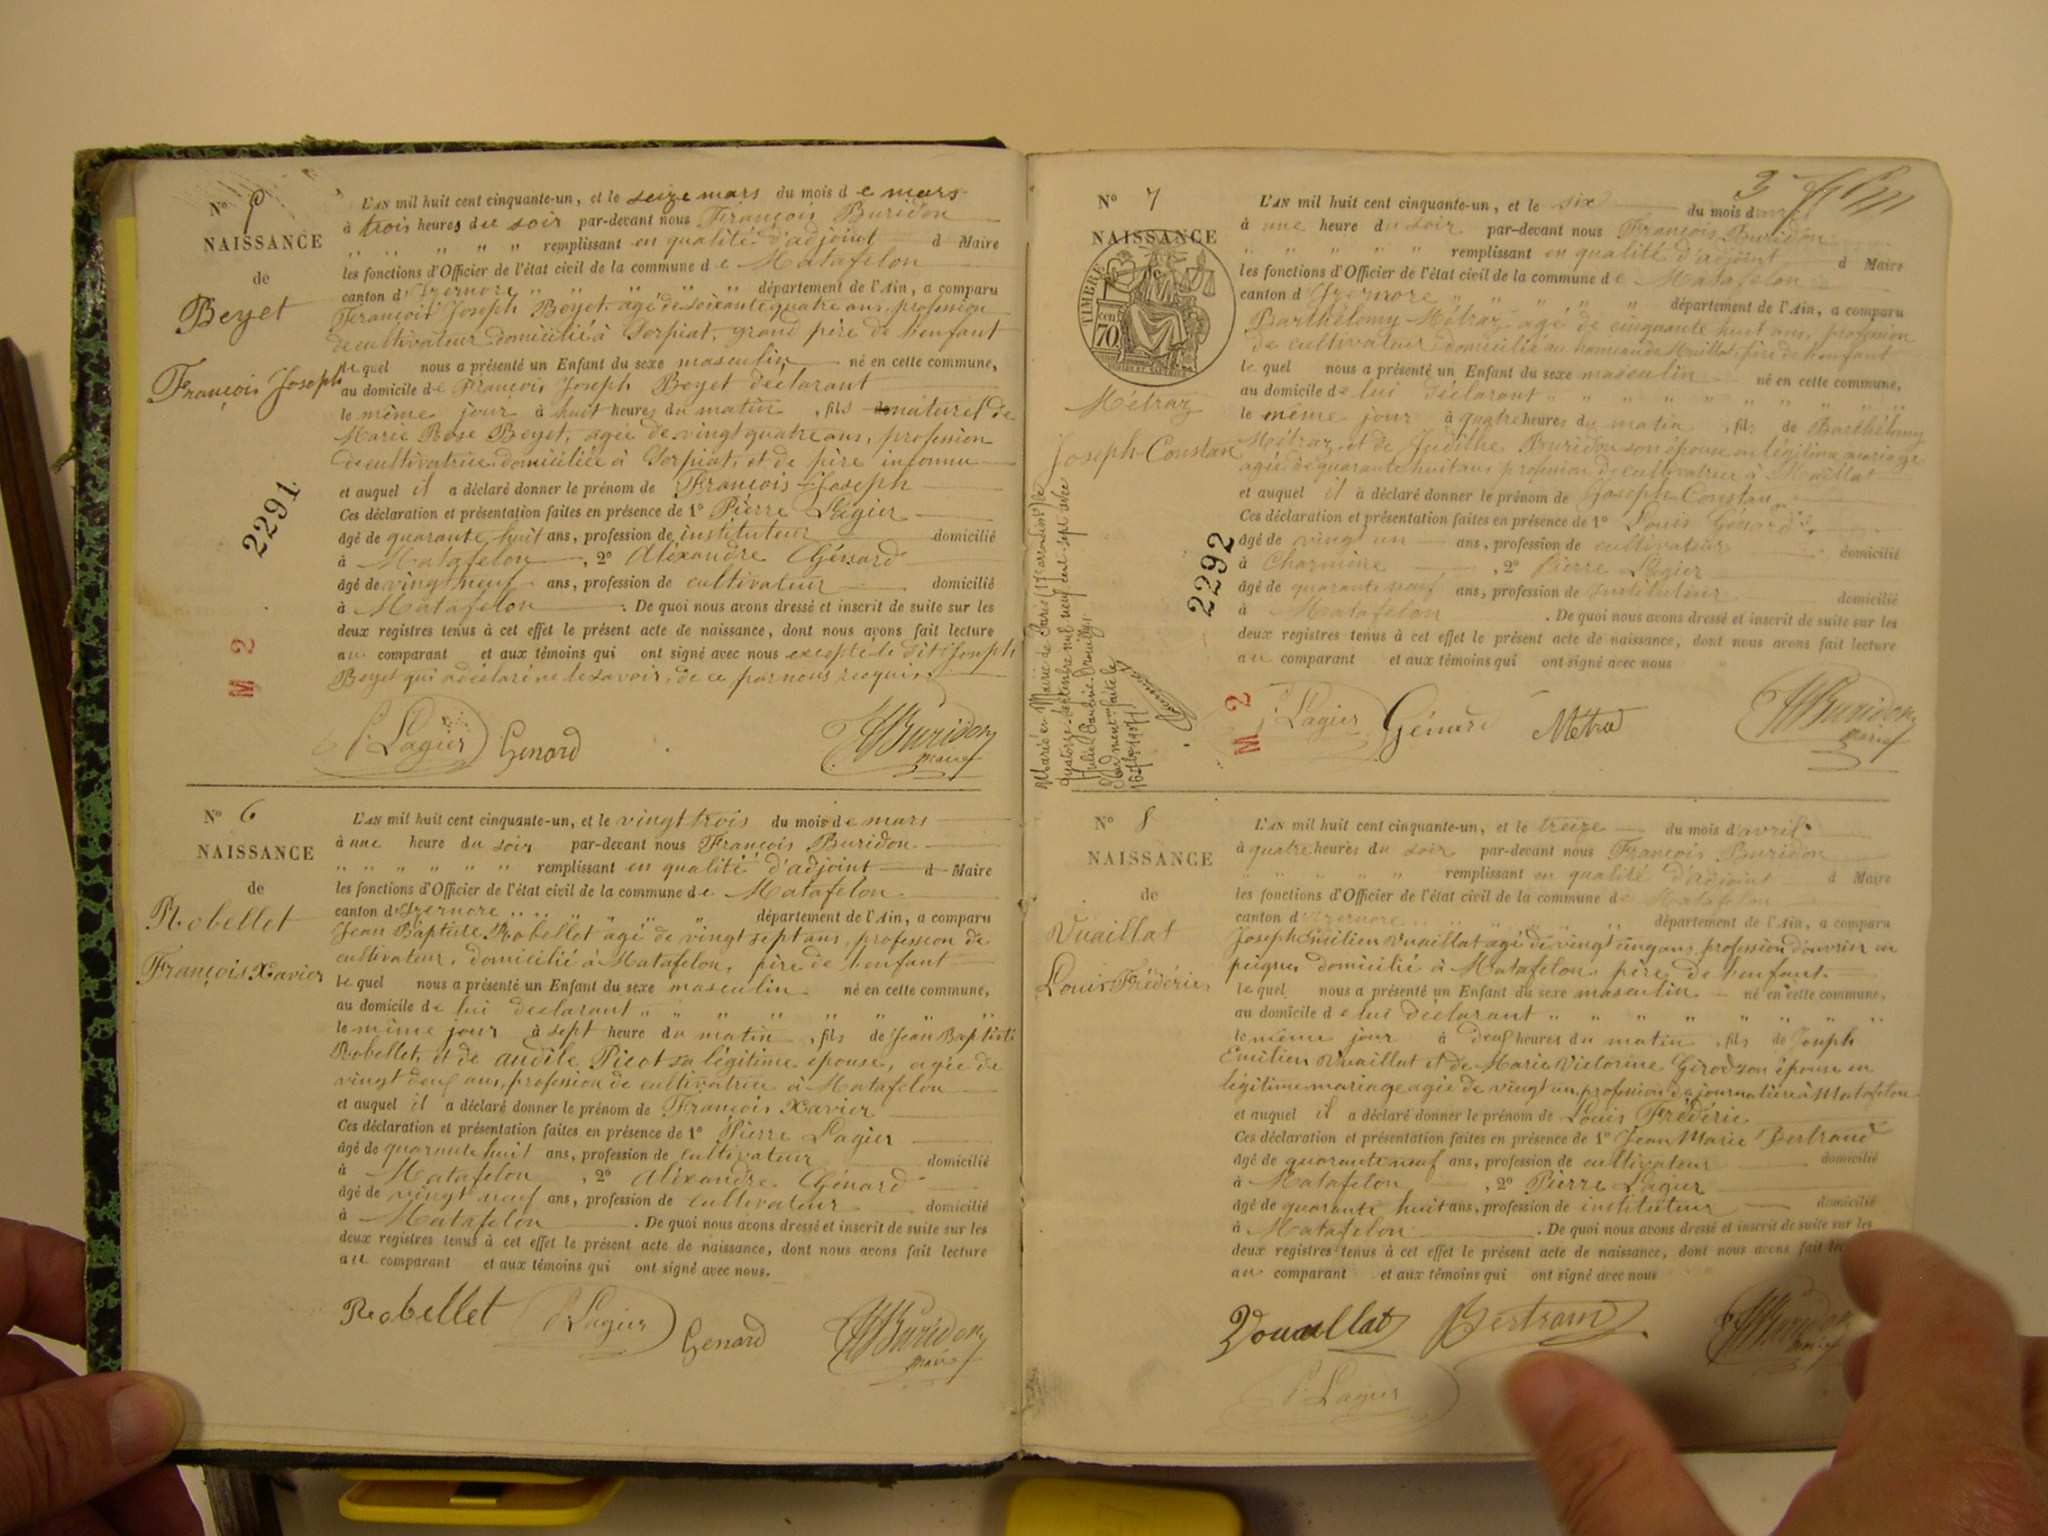 N° 5
NAISSANCE
de
Beyet
François Joseph
2291
M 2
L'AN mil huit cent cinquante-un, et le seize mars du mois de mars
à trois heures du soir par-devant nous François Buridon
" " " " " remplissant en qualité d'adjoint d Maire
les fonctions d'Officier de l'état civil de la commune de Matafelon
canton d'Izernore " " " " " département de l'Ain, a comparu
François Joseph Beyet agé de soixante quatre ans, profession
de cultivateur domicilié à Sorpiat, grand père de l'enfant
lequel nous a présenté un Enfant du sexe masculin né en cette commune,
au domicile de François Joseph Beyet déclarant
le même jour à huit heures du matin, fils de naturel de
Marie Rose Beyet, agée de vingt quatre ans, profession
de cultivatrice domiciliée à Sorpiat, et de père inconnu
et auquel il a déclaré donner le prénom de François-Joseph
Ces déclaration et présentation faites en présence de 1° Pierre Lagier
âgé de quarante huit ans, profession de instituteur domicilié
à Matafelon, 2° Aléxandre Génard
âgé de vingt neuf ans, profession de cultivateur domicilié
à Matafelon. De quoi nous avons dressé et inscrit de suite sur les
deux registres tenus à cet effet le présent acte de naissance, dont nous avons fait lecture
au comparant et aux témoins qui ont signé avec nous excepté le dit Joseph
Beyet qui a déclaré ne le savoir, de ce par nous requis.
P. Lagier Génard Buridon
N° 6
NAISSANCE
de
Robellet
François Xavier
L'AN mil huit cent cinquante-un, et le vingt trois du mois de mars
à une heure du soir par-devant nous François Buridon
" " " " " " remplissant en qualité d'adjoint d Maire
les fonctions d'Officier de l'état civil de la commune de Matafelon
canton d'Izernore " " " " " département de l'Ain, a comparu
Jean Baptiste Robellet agé de vingt sept ans, profession de
cultivateur, domicilié à Matafelon, père de l'enfant
lequel nous a présenté un Enfant du sexe masculin né en cette commune,
au domicile de lui déclarant " " " " " " "
le même jour à sept heure du matin, fils de Jean Baptiste
Robellet, et de Picot sa légitime épouse, agée de
vingt deux ans, profession de cultivatrice à Matafelon
et auquel il a déclaré donner le prénom de François Xavier
Ces déclaration et présentation faites en présence de 1° Pierre Lagier
âgé de quarante huit ans, profession de cultivateur domicilié
à Matafelon, 2° Aléxandre Génard
âgé de vingt neuf ans, profession de cultivateur domicilié
à Matafelon. De quoi nous avons dressé et inscrit de suite sur les
deux registres tenus à cet effet le présent acte de naissance, dont nous avons fait lecture
au comparant et aux témoins qui ont signé avec nous.
Robellet P. Lagier Génard Buridon
3
N° 7
NAISSANCE
de
TIMBRE
cent
70
Métraz
Joseph-Constan
2292
M 2
Marié en Mairie de Paris
quatorze septembre mil neuf cent sept avec
L'AN mil huit cent cinquante-un, et le six du mois d
à une heure du soir par-devant nous François Buridon
" " " " " remplissant en qualité d'adjoint d Maire
les fonctions d'Officier de l'état civil de la commune de Matafelon
canton d'Izernore " " " " département de l'Ain, a comparu
Barthélemy Métraz agé de cinquante huit ans, profession
de cultivateur domicilié au hameau de Moeillat, père de l'enfant
lequel nous a présenté un Enfant du sexe masculin né en cette commune,
au domicile de lui déclarant " " " " " " " "
le même jour à quatre heures du matin, fils de Barthélemy
Métraz, et de Judithe Buridon son épouse en légitime mariage
agée de quarante huit ans profession de cultivatrice à
et auquel il a déclaré donner le prénom de Joseph-Constan
Ces déclaration et présentation faites en présence de 1° Louis Génard
âgé de vingt un ans, profession de cultivateur domicilié
à Charmine, 2° Pierre Lagier
âgé de quarante neuf ans, profession de Instituteur domicilié
à Matafelon. De quoi nous avons dressé et inscrit de suite sur les
deux registres tenus à cet effet le présent acte de naissance, dont nous avons fait lecture
au comparant et aux témoins qui ont signé avec nous
P. Lagier Génard Métra Buridon
N° 8
NAISSANCE
de
Vuaillat
Louis Frédéric
L'AN mil huit cent cinquante-un, et le treize du mois d'avril
à quatre heures du soir par-devant nous François Buridon
" " " " " remplissant en qualité d'adjoint d Maire
les fonctions d'Officier de l'état civil de la commune de Matafelon
canton d'Izernore " " " " " département de l'Ain, a comparu
Joseph Emilien Vuaillat agé de vingt cinq ans, profession d'ouvrier en
peignes domicilié à Matafelon, père de l'enfant
lequel nous a présenté un Enfant du sexe masculin né en cette commune,
au domicile de lui déclarant " " " " " " "
le même jour à deux heures du matin, fils de Joseph
Emilien Vuaillat et de Marie Victorine Girod son épouse en
légitime mariage agée de vingt un, profession de journalière à Matafelon
et auquel il a déclaré donner le prénom de Louis Frédéric
Ces déclaration et présentation faites en présence de 1° Jean Marie Bertrand
âgé de quarante neuf ans, profession de cultivateur domicilié
à Matafelon, 2° Pierre Lagier
âgé de quarante huit ans, profession de instituteur domicilié
à Matafelon. De quoi nous avons dressé et inscrit de suite sur les
deux registres tenus à cet effet le présent acte de naissance, dont nous avons fait
au comparant et aux témoins qui ont signé avec nous
Vouaillat Bertrand Buridon
P. Lagier